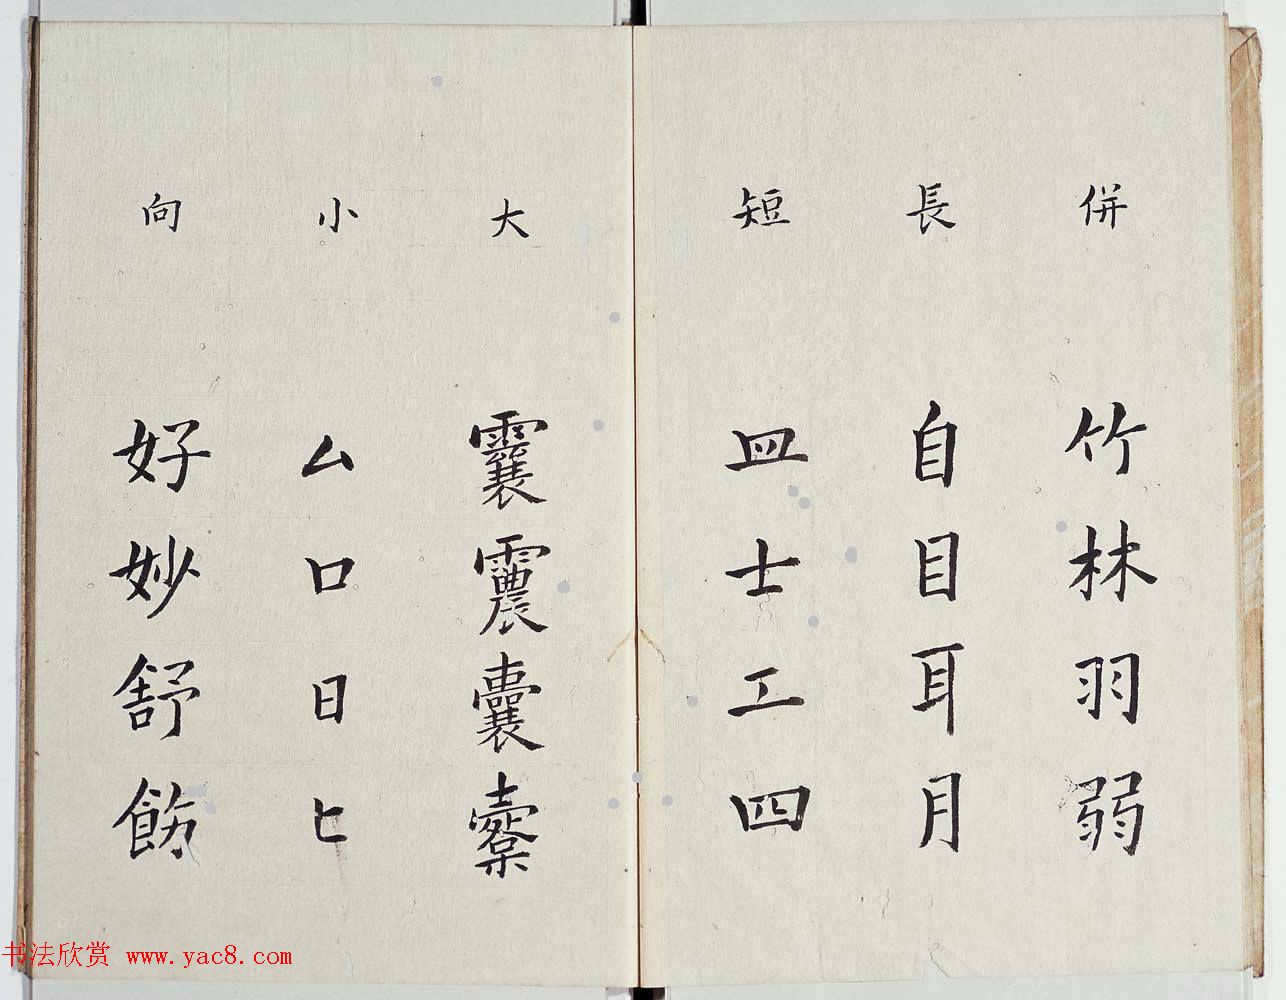 併 竹林羽弱
長 自目耳月
短 皿士工四
大 囊櫜
小 厶口日匕
向 好妙舒飭
书法欣赏 www.yac8.com